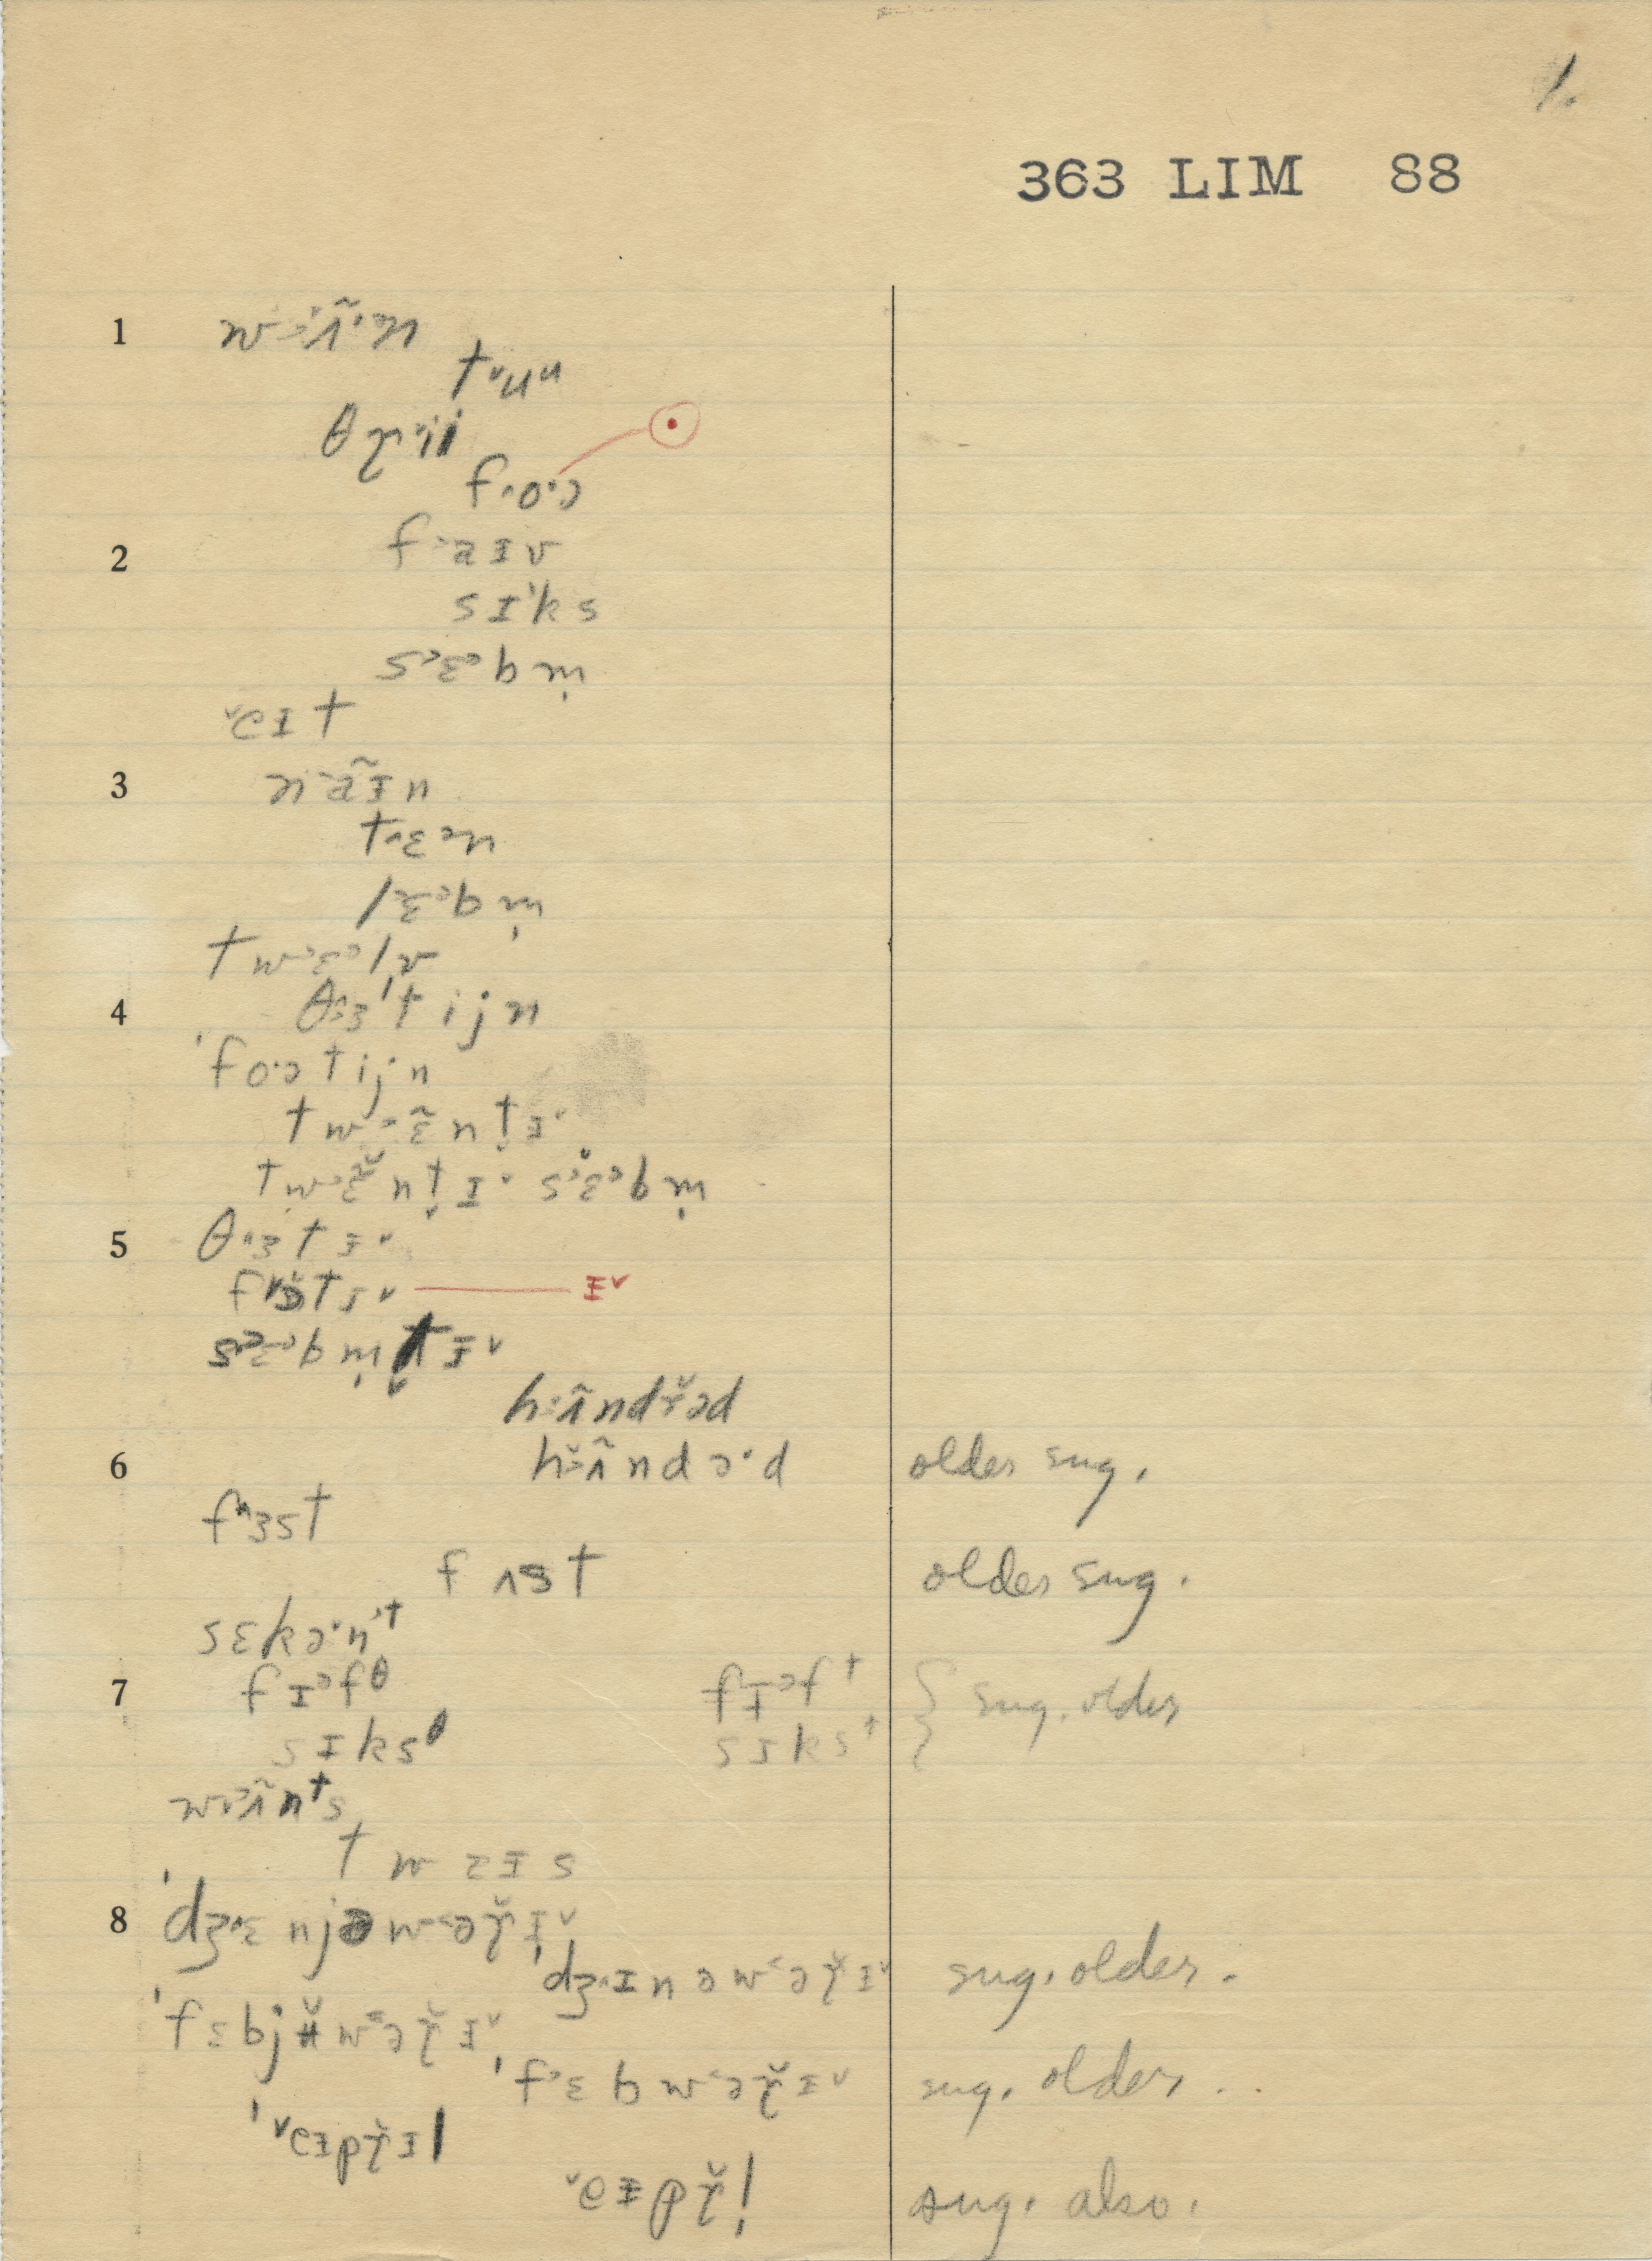 1.
363 LIM 88
1 w ʌ̃ n
t ˇ u ᵘ
θ ɽ i i
f o · ɔ
2 f a ɪ v
s ɪ k s
s ɛ ᵊ b m̩
ˇe ɪ t
3 n ã ɪ n
t ɛ ᵊ n
l ɛ ᵊ b m̩
t w ɛ ᵊ l v
4 θ ɜ ' t i j n
' f o · ɔ t i j n
t w ɛ̃ n t̬ ɪ ˇ
t w ɛ̃ n t̬ ɪ ˇ s ɛ ᵊ b m̩
5 θ ɜ t ɪ ˇ
f ɔ t ɪ ˇ ɪ ˇ
s ɛ ᵊ b m̩ t̬ ɪ ˇ
h ʌ̃ n d ɽ̆ ə d
6 h ʌ̃ n d ə · d older sug.
f ɜ s t
f ʌ s t older sug.
s ɛ k ə · n ᵗ
7 f ɪ ᵊ f ᶿ f ɪ ᵊ f ᵗ } sug. older
s ɪ k s ᶿ s ɪ k s ᵗ
w ʌ̃ n ᵗ s
t w a ɪ s
8 ' dʒ ɛ n j ə w ə ɽ̆ ɪ ˇ
' dʒ ɪ n ə w ə ɽ̆ ɪ ˇ sug. older.
' f ɛ b j ʉ̆ w ə ɽ̆ ɪ ˇ
' f ɛ b w ə ɽ̆ ɪ ˇ sug. older ..
' ˇe ɪ p ɽ̆ ɪ l
ˇe ɪ p ɽ̆ l̩ sug. also.